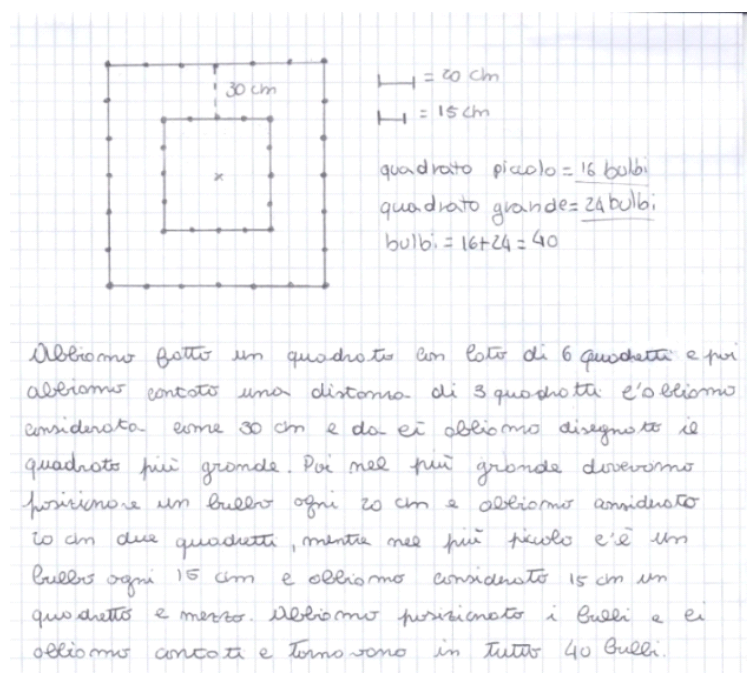 30 cm
= 20 cm
= 15 cm
quadrato piccolo = 16 bulbi
quadrato grande = 24 bulbi
bulbi = 16+24 = 40
Abbiamo fatto un quadrato con lato di 6 quadretti e poi
abbiamo contato una distanza di 3 quadretti e l'abbiamo
considerata come 30 cm e da ci abbiamo disegnato il
quadrato più grande. Poi nel più grande dovevamo
posizionare un bulbo ogni 20 cm e abbiamo considerato
20 cm due quadretti, mentre nel più piccolo c'è un
bulbo ogni 15 cm e abbiamo considerato 15 cm un
quadretto e mezzo. Abbiamo posizionato i bulbi e ci
abbiamo contati e tornavano in tutto 40 bulbi.